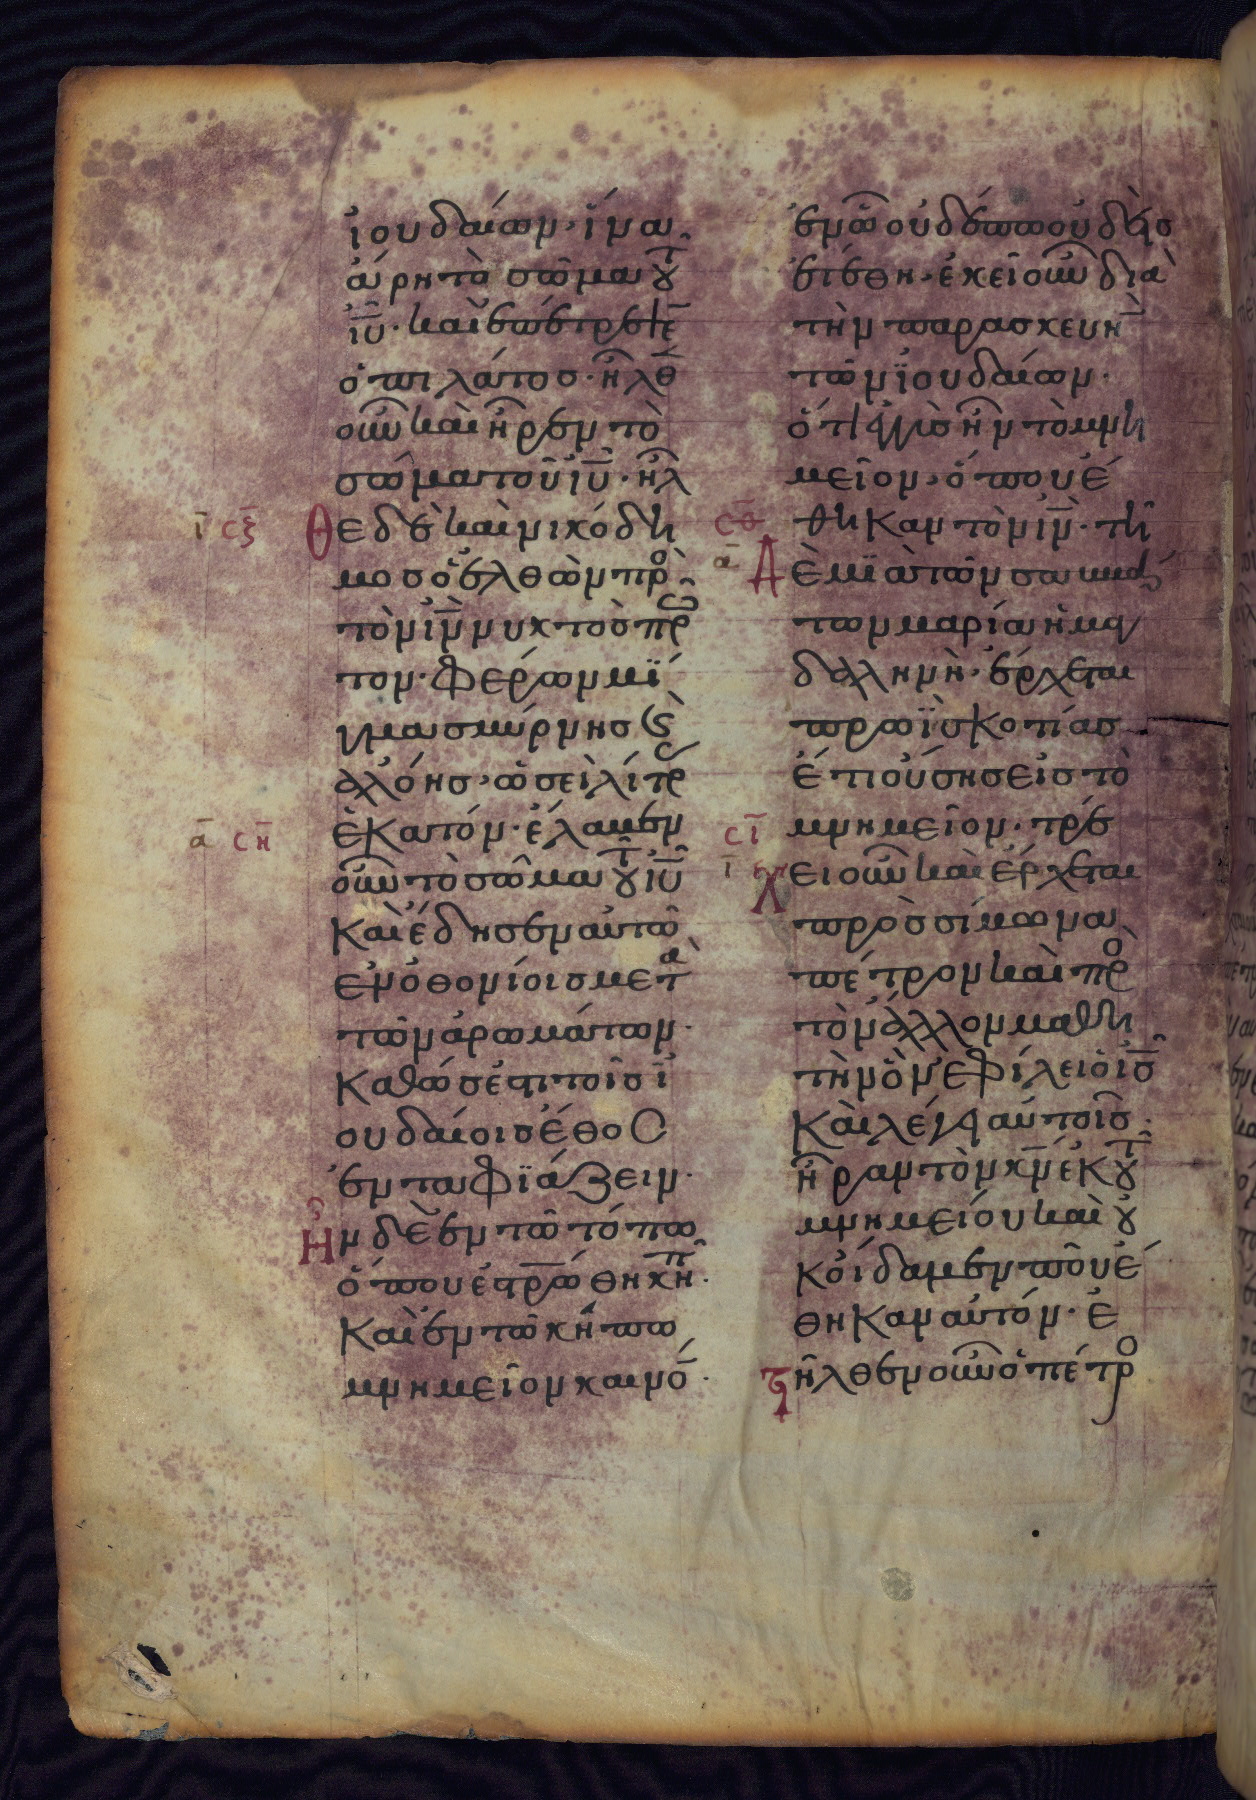 ἰουδαίων· ἵνα
ἄρη τὸ σῶμα τοῦ
ἰῦ· καὶ ἐπέτρεψε
ὁ πιλάτος· ἦλθε
οὖν καὶ ἦρεν τὸ
σῶμα τοῦ ἰῦ· ἦλ
ῑ σξ θε δὲ καὶ νικόδη
μος ὁ ἐλθὼν πρὸς
τὸν ἰν νυκτὸς πρῶ
τον· φέρων μί
γμα σμύρνης καὶ
ἀλόης, ὡσεὶ λίτρας
ᾱ ση ἑκατόν· ἔλαβεν
οὖν τὸ σῶμα τοῦ ἰῦ
καὶ ἔδησεν αὐτὸ
ἐν ὀθονίοις μετὰ
τῶν ἀρωμάτων·
καθώς ἐστι τοῖς ἰ
ουδαίοις ἔθος
ἐνταφϊάζειν·
Ἦν δὲ ἐν τῶ τόπω
ὅπου ἐστρώθη κῆπ·
καὶ ἐν τῶ κήπω
μνημεῖον καινό·
ἐν ὧ οὐδέπω οὐδεὶς
ἐτέθη· ἐκεῖ οὖν διὰ
τὴν παρασκευὴν
τῶν ἰουδαίων·
ὅτι ἐγγὺς ἦν τὸ μνη
μεῖον, ὅπου ἔ
σθ θηκαν τὸν ἰν· τῆ
ᾱ Δὲ μιᾶ τῶν σαββά
των μαρία ἡ μαγ
δαληνὴ· ἔρχεται
πρωῒ σκοτίας
ἔτι οὔσης εἰς τὸ
σῑ μνημεῖον· τρέ
ῑ χει οὖν καὶ ἔρχεται
πρὸς σίμωνα
πέτρον καὶ πρὸς
τὸν ἄλλον μαθη
τὴν ὃν ἐφίλει ὁ ἰς
καὶ λέγει αὐτοῖς·
ἦραν τὸν κν ἐκ τοῦ
μνημείου καὶ οὐ
κ οἴδαμεν ποῦ ἔ
θηκαν αὐτόν· ἐ
ξῆλθεν οὖν ὁ πέτρο